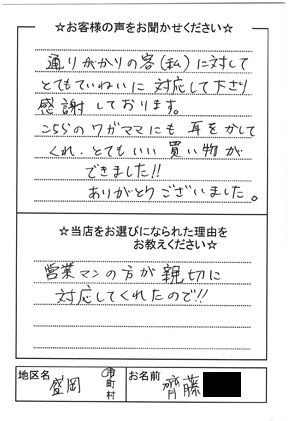 ☆お客様の声をお聞かせください☆
通りがかりの客(私)に対して
とてもていねいに対応して下さり
感謝しております。
こちらのワガママにも耳をかして
くれ、とてもいい買い物が
できました!!
ありがとうございました。
☆当店をお選びになられた理由を
お教えください☆
営業マンの方が親切に
対応してくれたので!!
地区名 盛岡 市町村 お名前 齊藤